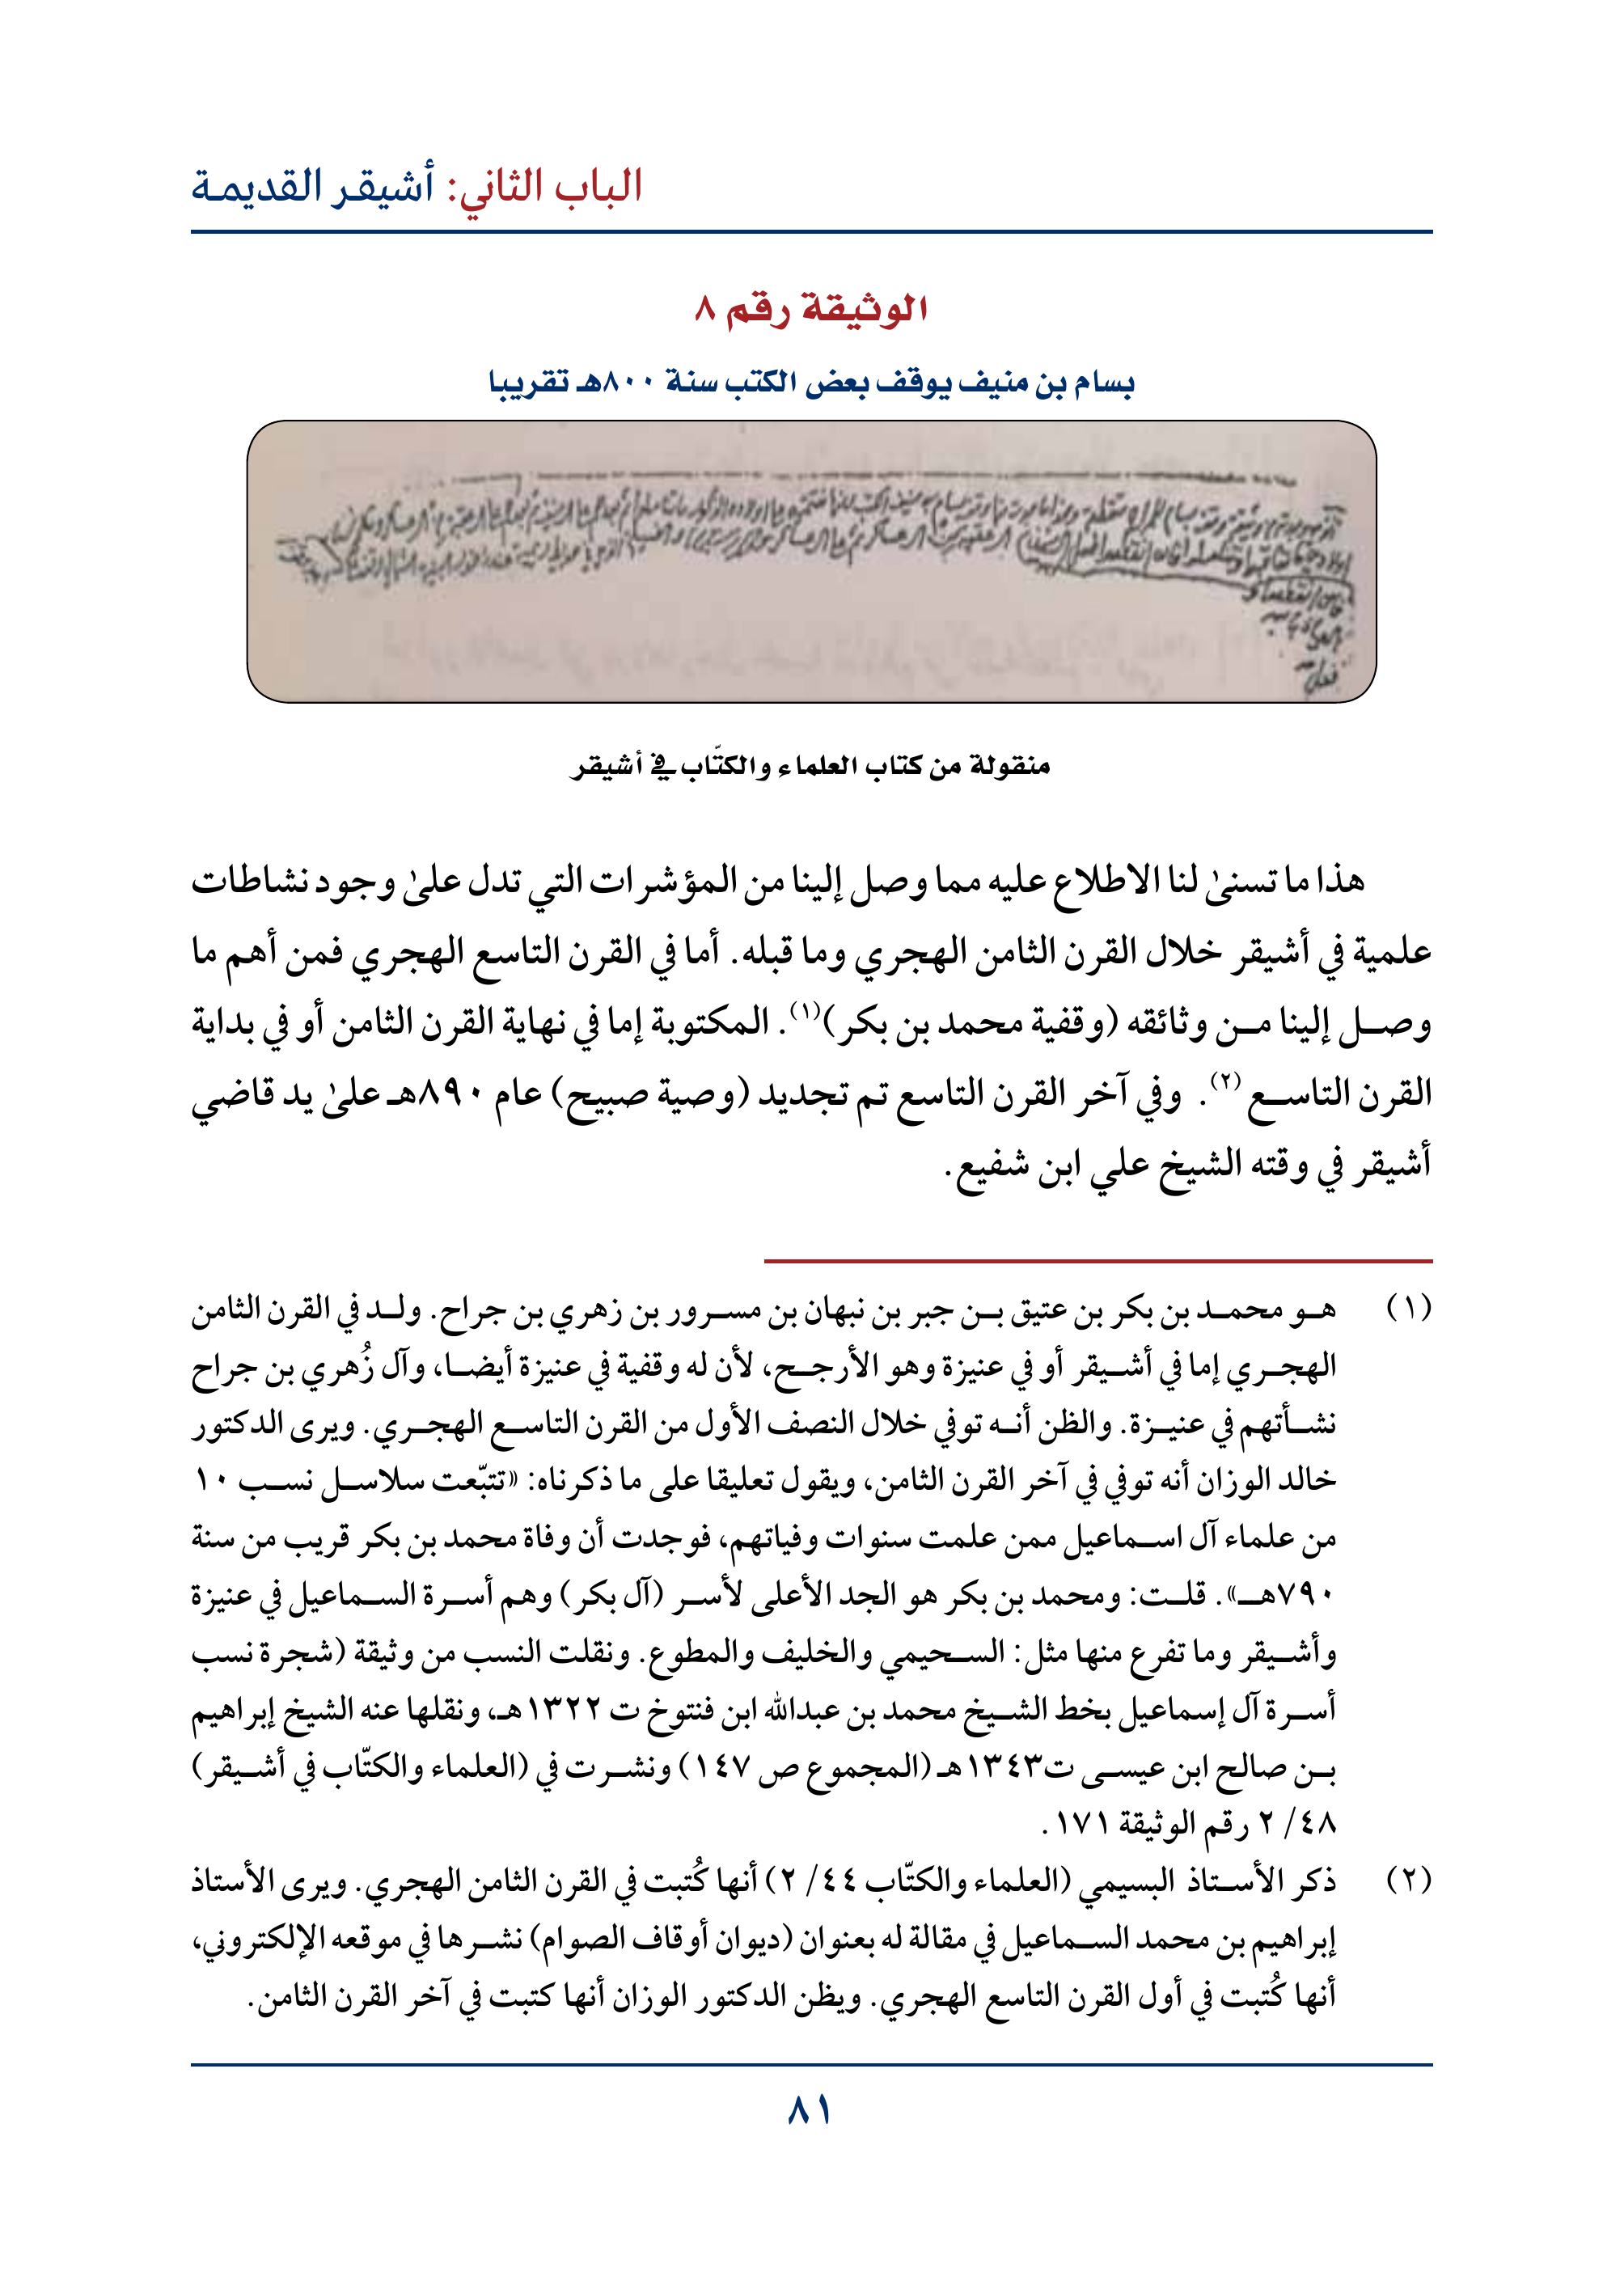 الباب الثاني: أشيقر القديمة
الوثيقة رقم ٨
بسام بن منيف يوقف بعض الكتب سنة ٨٠٠هـ تقريبا
منقولة من كتاب العلماء والكتّاب في أشيقر
هذا ما تسنىٰ لنا الاطلاع عليه مما وصل إلينا من المؤشرات التي تدل علىٰ وجود نشاطات
علمية في أشيقر خلال القرن الثامن الهجري وما قبله. أما في القرن التاسع الهجري فمن أهم ما
وصل إلينا من وثائقه (وقفية محمد بن بكر)(١). المكتوبة إما في نهاية القرن الثامن أو في بداية
القرن التاسع (٢). وفي آخر القرن التاسع تم تجديد (وصية صبيح) عام ٨٩٠هـ علىٰ يد قاضي
أشيقر في وقته الشيخ علي ابن شفيع.
(١) هو محمد بن بكر بن عتيق بن جبر بن نبهان بن مسرور بن زهري بن جراح. ولد في القرن الثامن
الهجري إما في أشيقر أو في عنيزة وهو الأرجح، لأن له وقفية في عنيزة أيضا، وآل زُهري بن جراح
نشأتهم في عنيزة. والظن أنه توفي خلال النصف الأول من القرن التاسع الهجري. ويرى الدكتور
خالد الوزان أنه توفي في آخر القرن الثامن، ويقول تعليقا على ما ذكرناه: «تتبّعت سلاسل نسب ١٠
من علماء آل اسماعيل ممن علمت سنوات وفياتهم، فوجدت أن وفاة محمد بن بكر قريب من سنة
٧٩٠هـ». قلت: ومحمد بن بكر هو الجد الأعلى لأسر (آل بكر) وهم أسرة السماعيل في عنيزة
وأشيقر وما تفرع منها مثل: السحيمي والخليف والمطوع. ونقلت النسب من وثيقة (شجرة نسب
أسرة آل إسماعيل بخط الشيخ محمد بن عبدالله ابن فنتوخ ت ١٣٢٢هـ، ونقلها عنه الشيخ إبراهيم
بن صالح ابن عيسى ت١٣٤٣هـ (المجموع ص ١٤٧) ونشرت في (العلماء والكتّاب في أشيقر)
٤٨/ ٢ رقم الوثيقة ١٧١.
(٢) ذكر الأستاذ البسيمي (العلماء والكتّاب ٤٤/ ٢) أنها كُتبت في القرن الثامن الهجري. ويرى الأستاذ
إبراهيم بن محمد السماعيل في مقالة له بعنوان (ديوان أوقاف الصوام) نشرها في موقعه الإلكتروني،
أنها كُتبت في أول القرن التاسع الهجري. ويظن الدكتور الوزان أنها كتبت في آخر القرن الثامن.
٨١